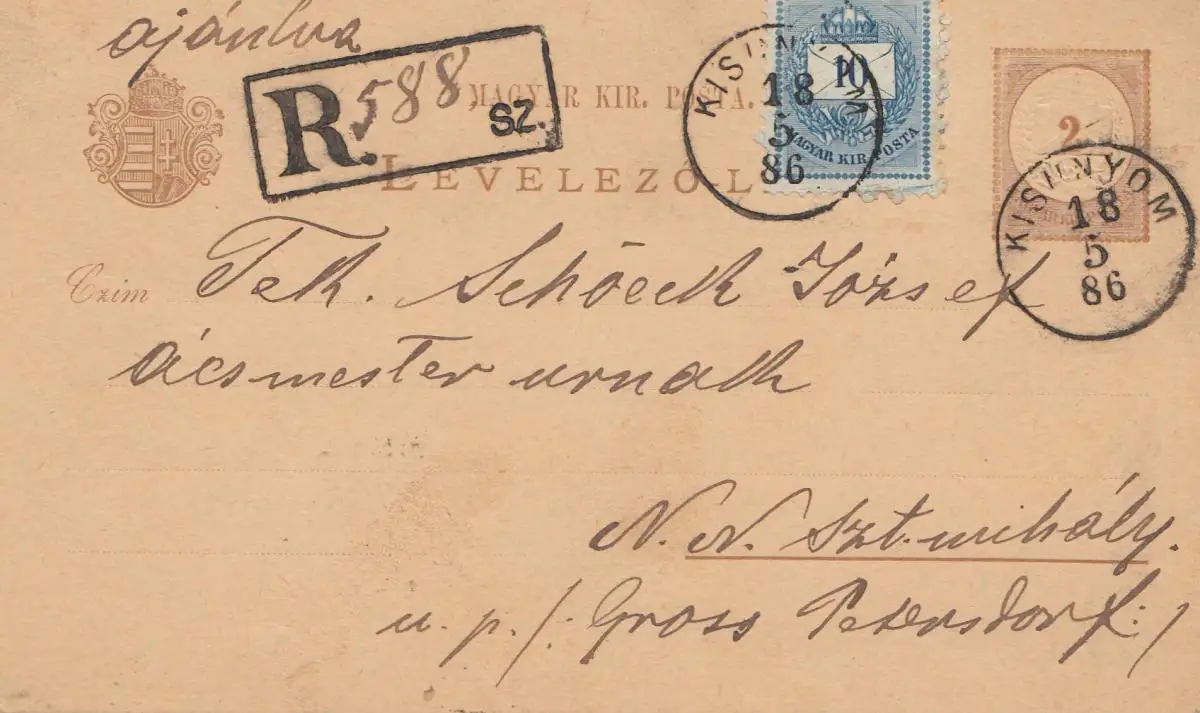 ajánlva
R. 588, SZ.
MAGYAR KIR. POSTA.
LEVELEZŐ-L
10
MAGYAR KIR. POSTA
KISUNYOM
18
5
86
2
KISUNYOM
18
5
86
Czim Tek. Schöeck József
ácsmester urnak
N. N. Szt. mihály.
u. p. /: Gross Petersdorf :/